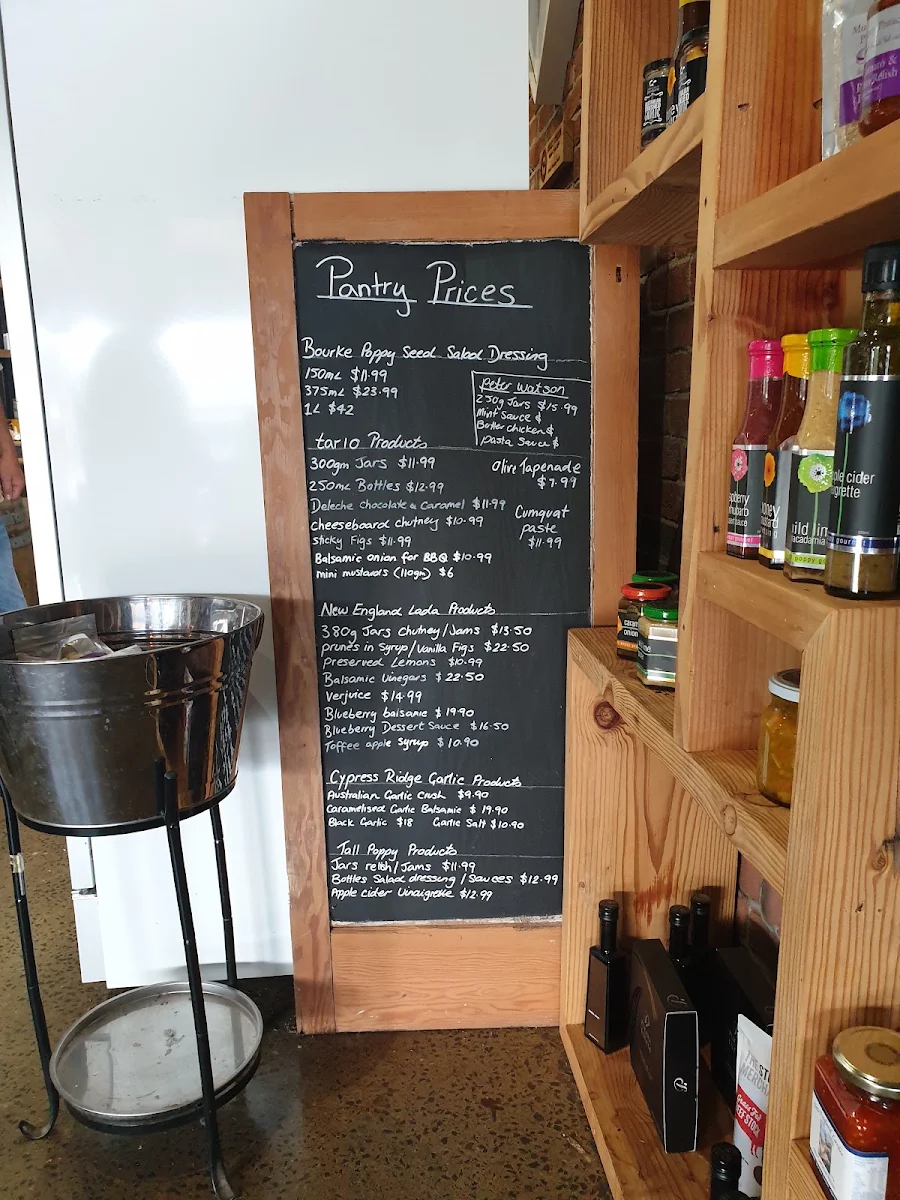 Pantry Prices
Bourke Poppy Seed Salad Dressing
150mL $11.99
375mL $23.99
1L $42
Peter Watson
250g Jars $15.99
Mint Sauce $
Butter Chicken $
Pasta Sauce $
tario Products
300gm Jars $11.99
250mL Bottles $12.99
Deleche chocolate & Caramel $11.99
cheeseboard chutney $10.99
sticky Figs $11.99
Balsamic onion for BBQ $10.99
mini mustards (110gm) $6
Olive Tapenade
$7.99
Cumquat
paste
$11.99
New England Lada Products
380g Jars chutney/Jams $13.50
prunes in Syrup/Vanilla Figs $22.50
preserved Lemons $10.99
Balsamic Vinegars $22.50
Verjuice $14.99
Blueberry balsamic $19.90
Blueberry Dessert Sauce $16.50
Toffee apple Syrup $10.90
Cypress Ridge Garlic Products
Australian Garlic Crush $9.90
Caramelised Garlic Balsamic $19.90
Black Garlic $18 Garlic Salt $10.90
Tall Poppy Products
Jars relish/Jams $11.99
Bottles Salad dressing/Sauces $12.99
Apple cider Vinaigrette $12.99